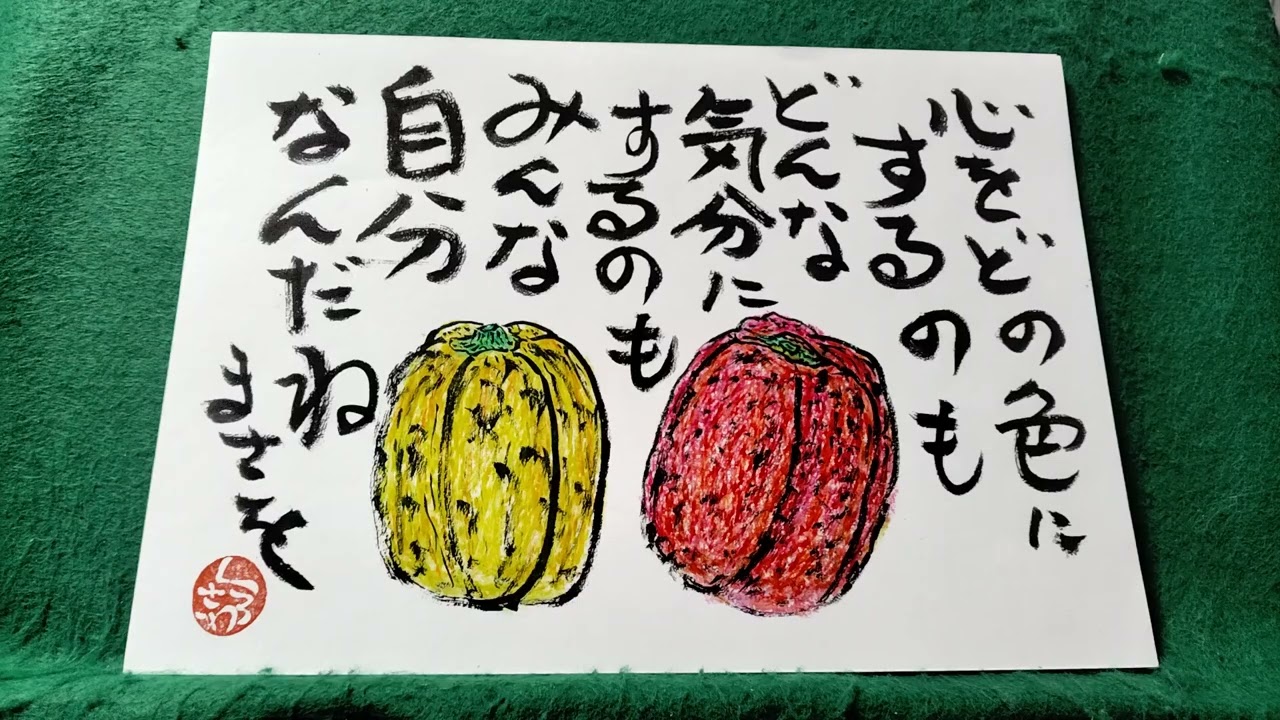 心をどの色に
するのも
どんな
気分に
するのも
みんな
自分
なんだね
まさを